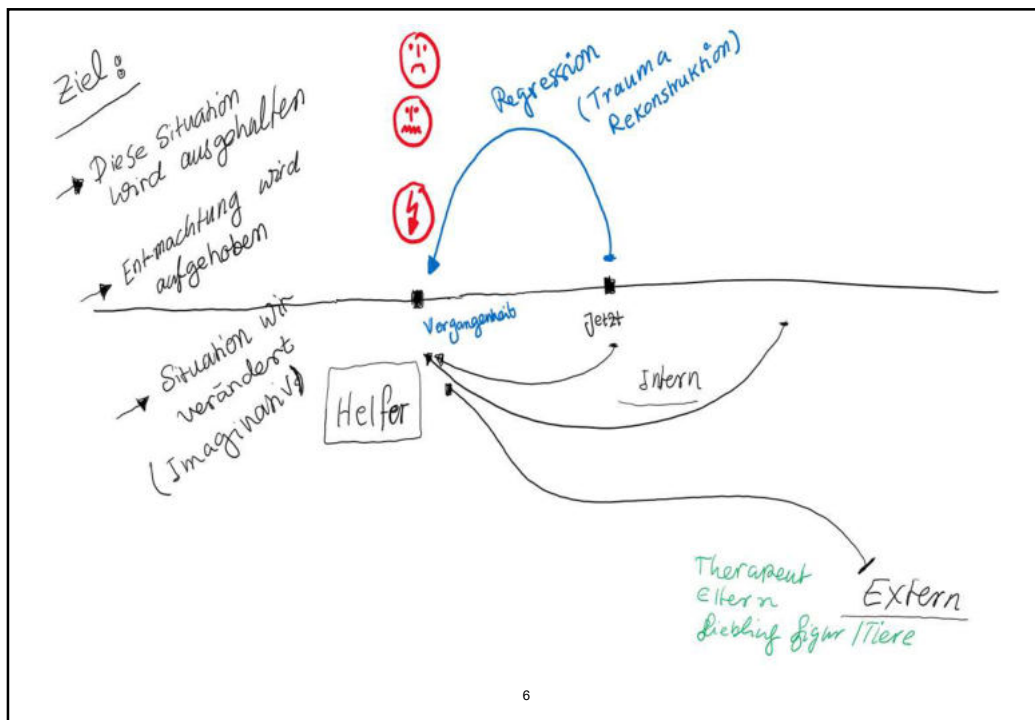 Ziel:
→ Diese Situation
wird ausgehalten
→ Entmachtung wird
aufgehoben
→ Situation wir
verändert
(Imaginativ)
Regression
(Trauma
Rekonstruktion)
Vergangenheib
Jetzt
Helfer
Intern
Therapeut
Eltern
Liebling figur / Tiere
Extern
6